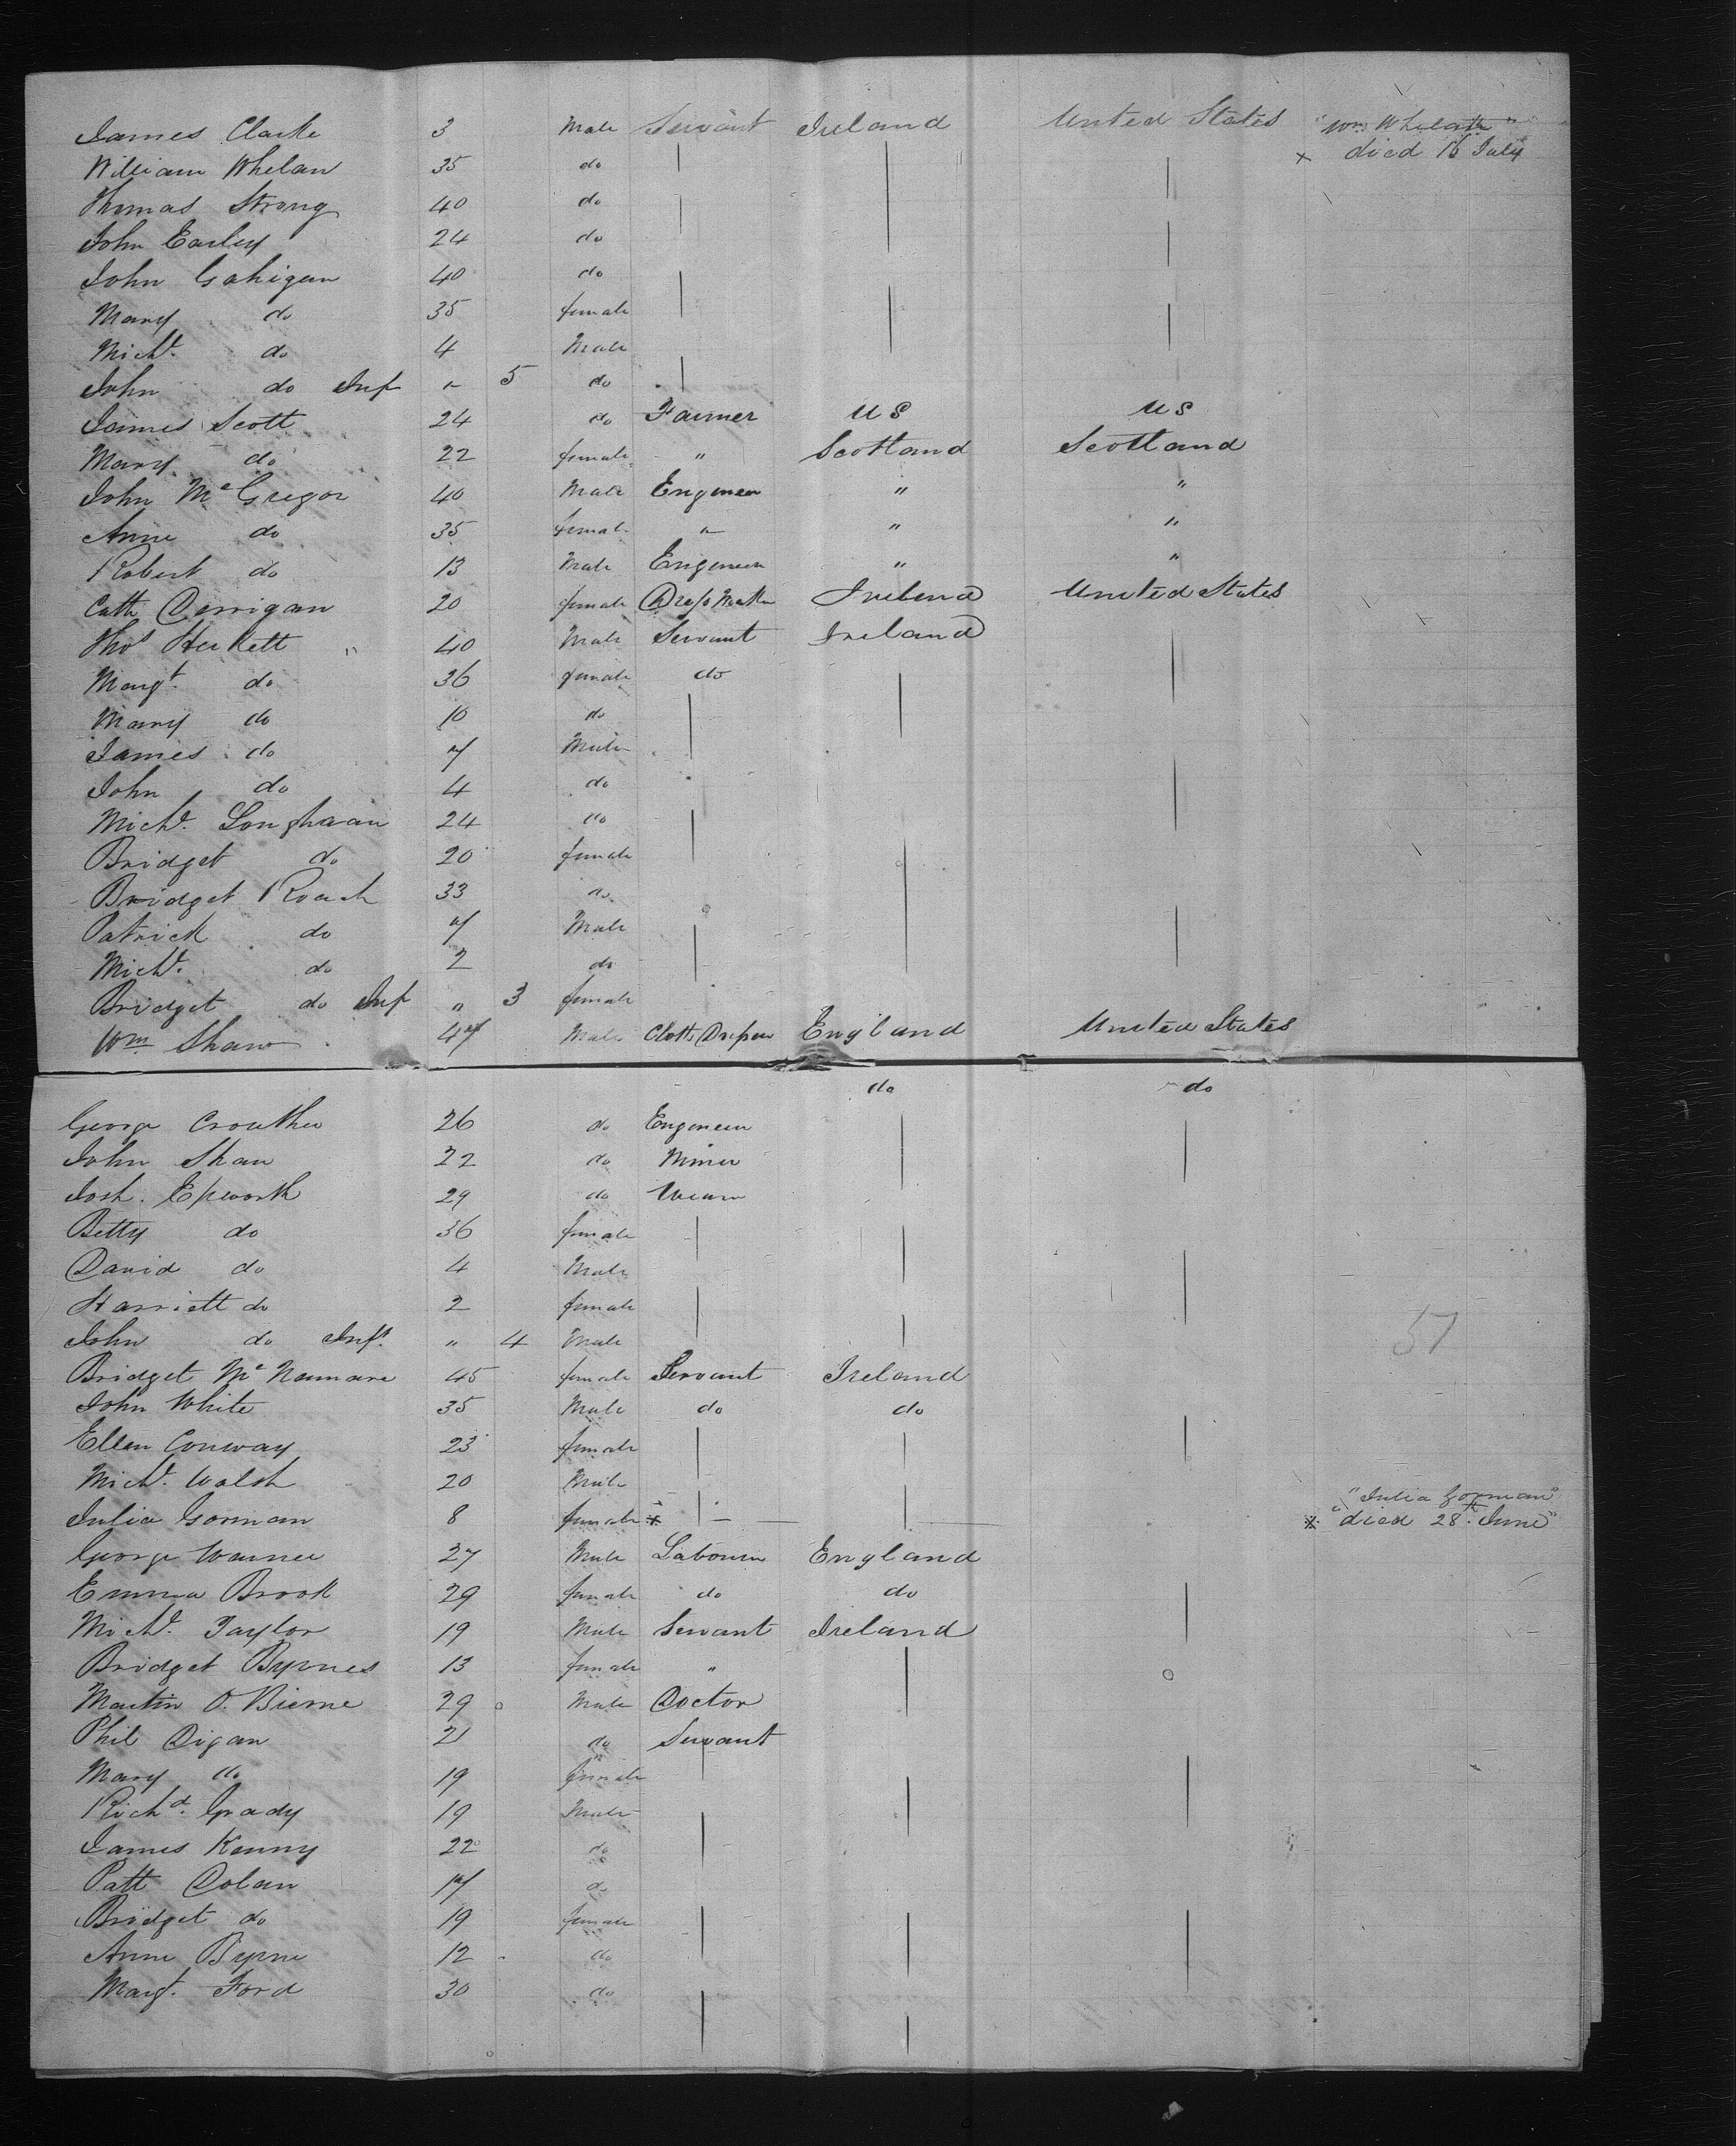 James Clarke 3 Male Servant Ireland United States "Wm Whelan"
William Whelan 35 do × died 16 July
Thomas Strong 40 do
John Earley 24 do
John Gahigan 40 do
Mary do 35 female
Michl. do 4 Male
John do Inf " 5 do
James Scott 24 do Farmer US US
Mary do 22 female " Scotland Scotland
John McGregor 40 Male Engineer " "
Anne do 35 female " " "
Robert do 13 Male Engineer " "
Cath Derrigan 20 female Dress Maker Ireland United States
Thos Heckett " 40 Male Servant Ireland
Margt. do 36 female do
Mary do 10 do
James do 7 Male
John do 4 do
Michl. 24 do
Bridget do 20 female
Bridget Roach 33 do
Patrick do 7 Male
Michl. do 2 do
Bridget do Inf " 3 female
Wm Shaw 47 Male Cloth Dresser England United States
do do
George Crowther 26 do Engineer
John Shaw 22 do Miner
Josh. Epworth 29 do
Betty do 36 female
David do 4 Male
Harriett do 2 female
John do Inft. " 4 Male 57
Bridget McNamara 45 female Servant Ireland
John White 35 Male do do
Ellen Conway 23 female
Michl. Walsh 20 Male "Julia Gorman"
Julia Gorman 8 female × × "died 28th June"
George Warner 27 Male Labourer England
Emma Brook 29 female do do
Michl. Taylor 19 Male Servant Ireland
Bridget Byrnes 13 female "
Martin O. Bierne 29 Male Doctor
Phil Digan 21 do Servant
Mary do 19 female
Richd. Grady 19 Male
James Kenny 22 do
Patt Dolan 17 do
Bridget do 19 female
Anne Byrne 12 do
Margt. Ford 30 do